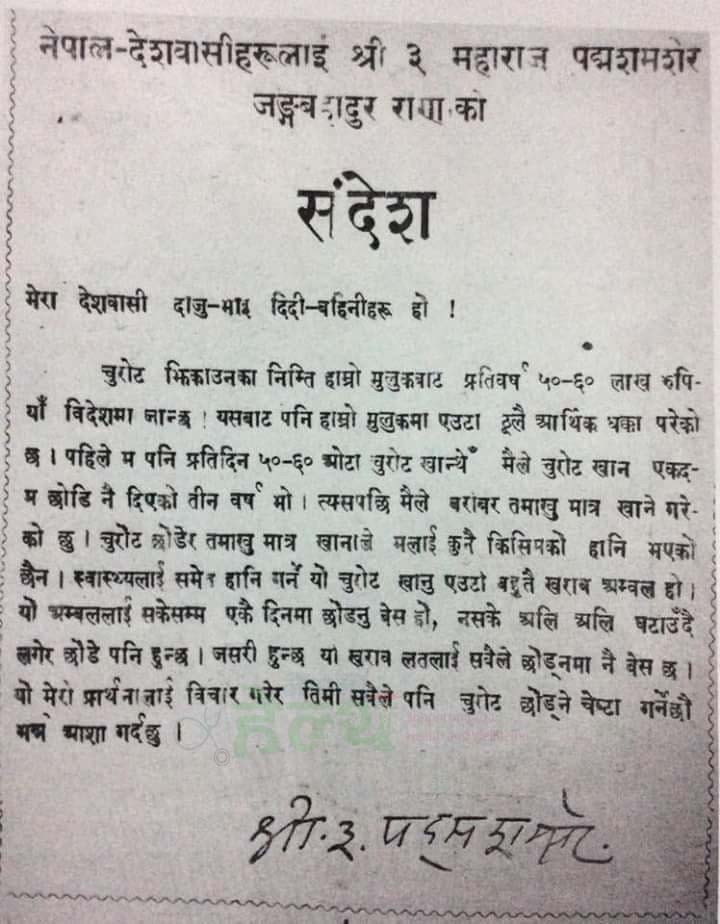 नेपाल-देशवासीहरूलाई श्री ३ महाराज पद्मशमशेर
जङ्गबहादुर राणाको
संदेश
मेरा देशवासी दाजु-भाइ दिदी-बहिनीहरू हो !
चुरोट झिकाउनका निम्ति हाम्रो मुलुकबाट प्रतिवर्ष ५०-६० लाख रुपि-
याँ विदेशमा जान्छ ! यसबाट पनि हाम्रो मुलुकमा एउटा ठूलै आर्थिक धक्का परेको
छ । पहिले म पनि प्रतिदिन ५०-६० ओटा चुरोट खान्थेँ मैले चुरोट खान एकद-
म छोडि नै दिएको तीन वर्ष भो । त्यसपछि मैले बराबर तमाखु मात्र खाने गरे-
को छु । चुरोट छोडेर तमाखु मात्र खानाले मलाई कुनै किसिमको हानि भएको
छैन । स्वास्थ्यलाई समेत हानि गर्ने यो चुरोट खानु एउटा बहुतै खराब अम्बल हो ।
यो अम्बललाई सकेसम्म एकै दिनमा छोडनु बेस हो, नसके अलि अलि घटाउँदै
लगेर छोडे पनि हुन्छ । जसरी हुन्छ यो खराब लतलाई सबैले छोड्नमा नै बेस छ ।
यो मेरो प्रार्थनालाई विचार गरेर तिमी सबैले पनि चुरोट छोड्ने चेष्टा गर्नेछौ
भन्ने आशा गर्दछु ।
हेल्थ
श्री.३. पद्मशमशेर.